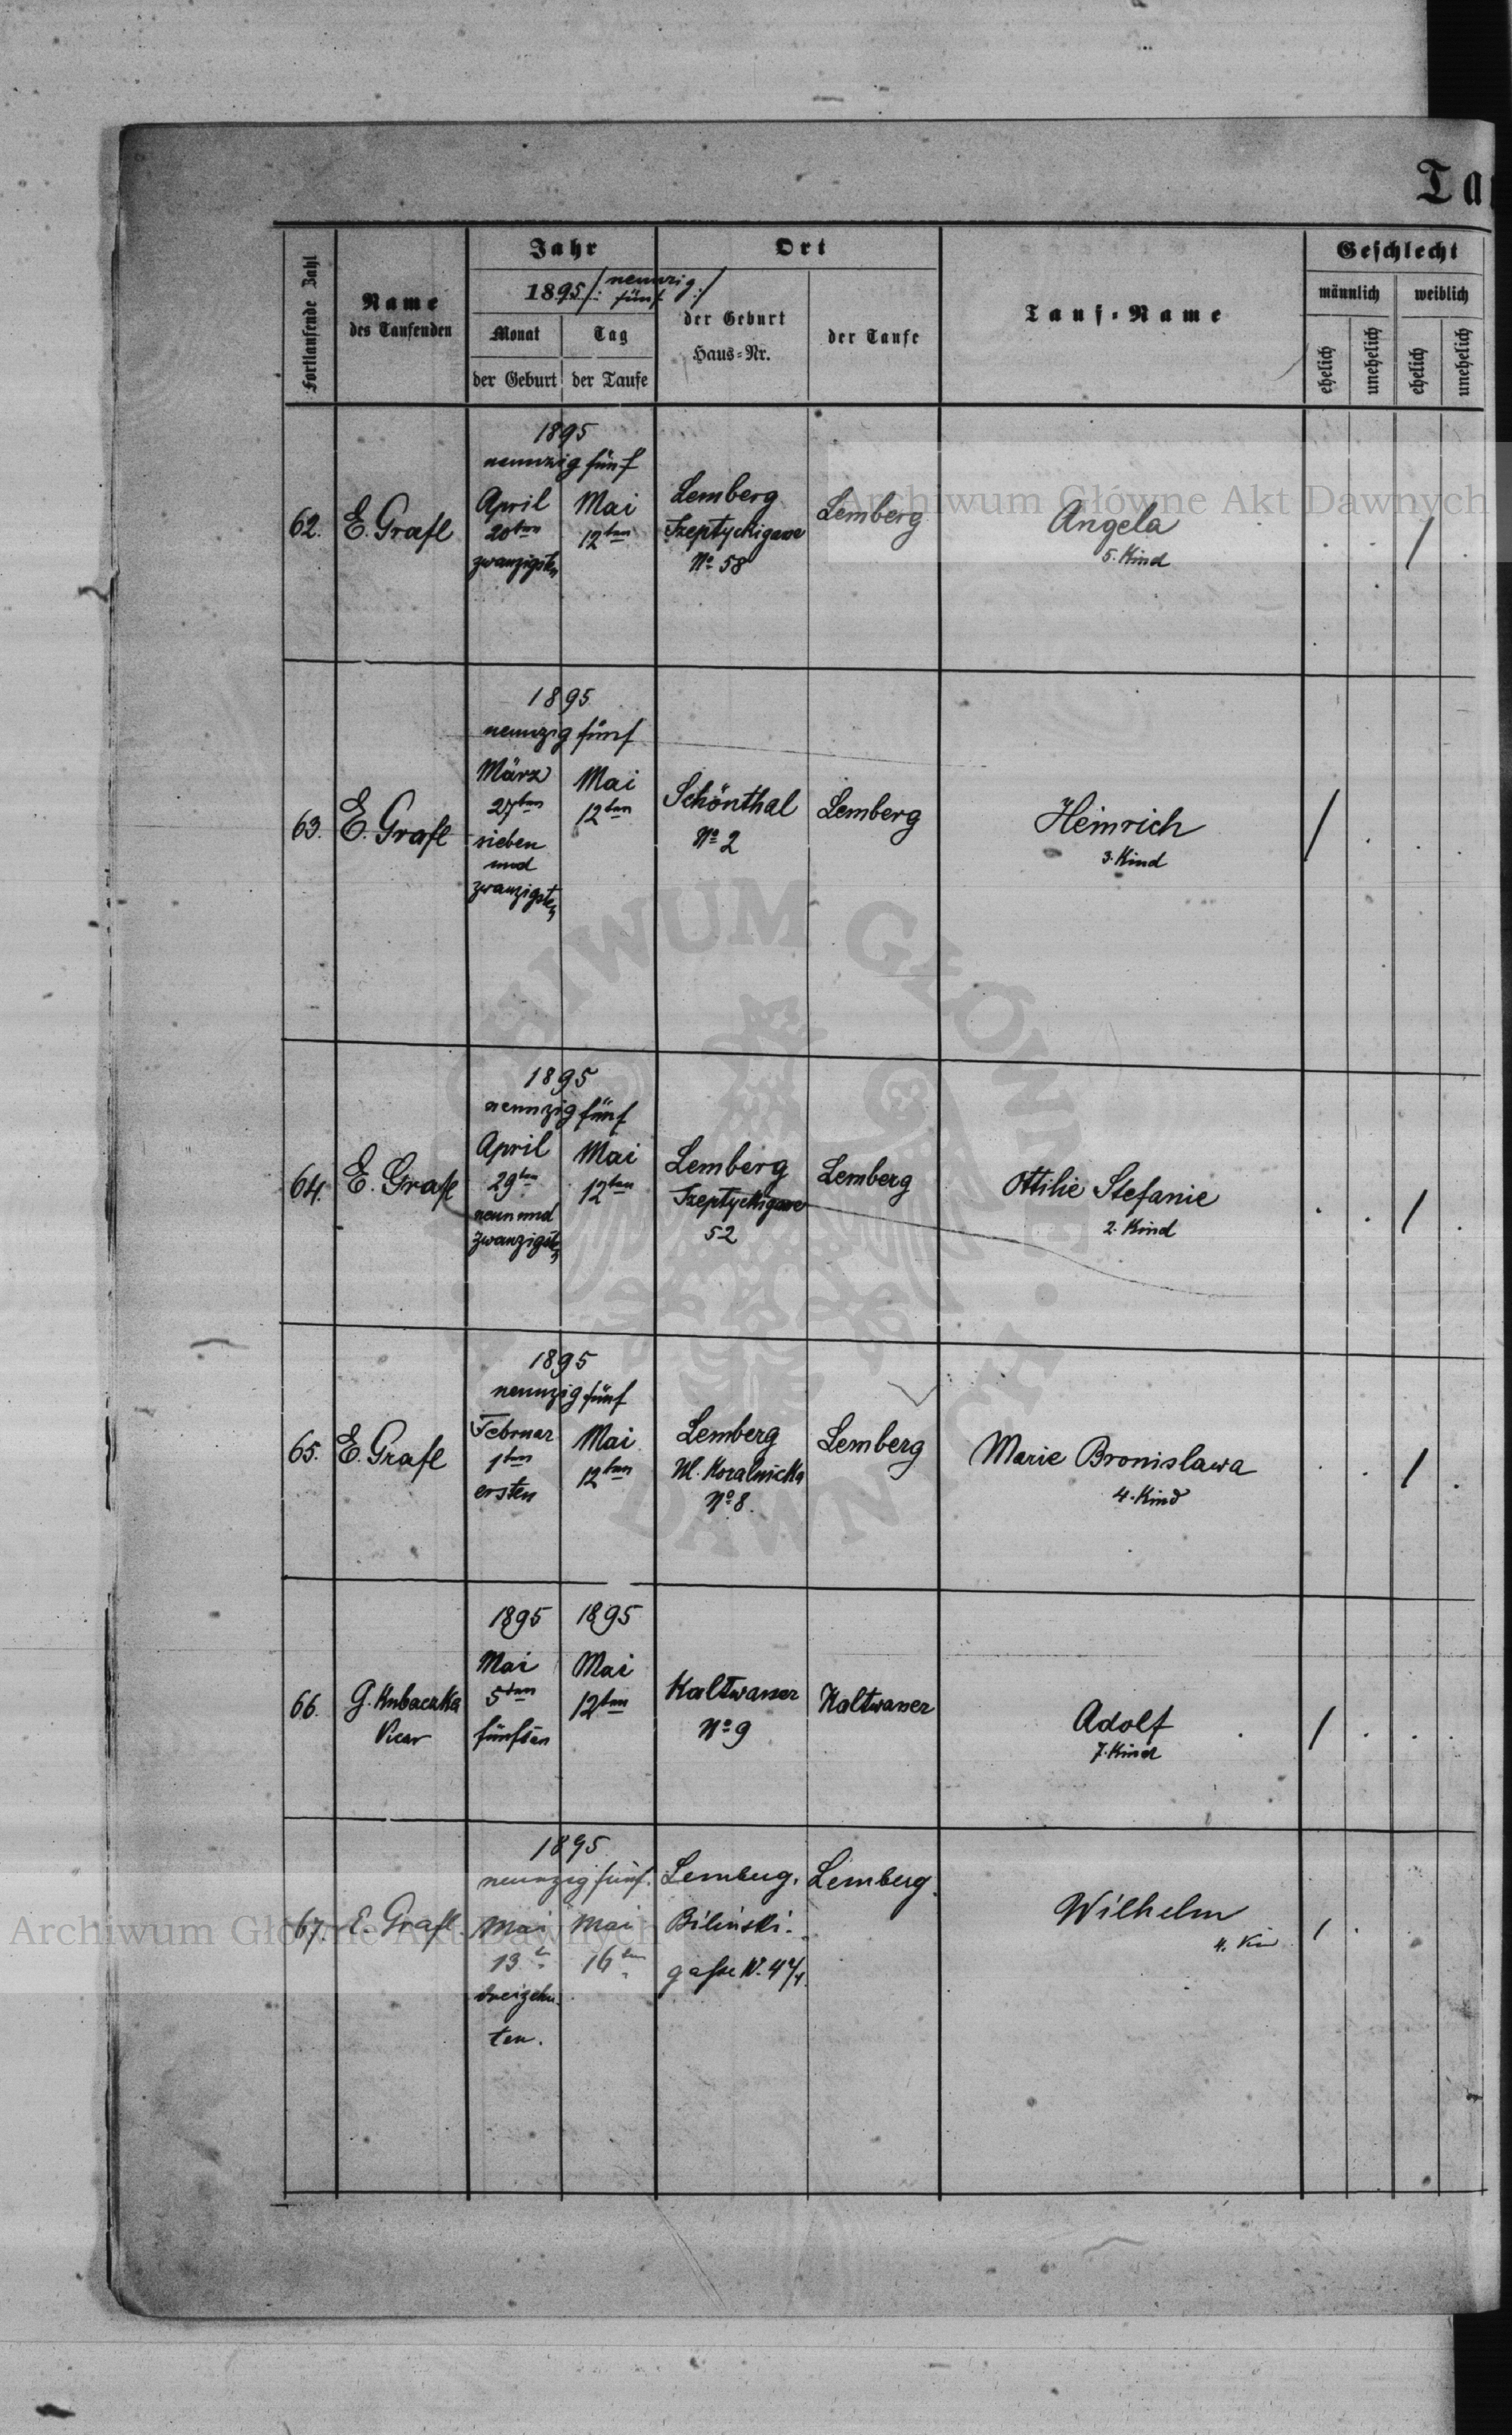 Ta
Fortlaufende Zahl
Name
des Taufenden
Jahr
1895 /: neunzig
fünf :/
Monat
Tag
der Geburt
der Taufe
Ort
der Geburt
Haus-Nr.
der Taufe
Tauf-Name
Geschlecht
männlich
weiblich
ehelich
unehelich
ehelich
unehelich
1895
neunzig fünf
62.
E. Grafl
April
20ten
zwanzigsten
Mai
12ten
Lemberg
Szeptyckigasse
No 58
Lemberg
Angela
5. Kind
/
1895
neunzig fünf
63.
E. Grafl
März
27ten
sieben
und
zwanzigsten
Mai
12ten
Schönthal
No 2
Lemberg
Heinrich
3. Kind
/
1895
neunzig fünf
64.
E. Grafl
April
29ten
neun und
zwanzigsten
Mai
12ten
Lemberg
Szeptyckigasse
52
Lemberg
Ottilie Stefanie
2. Kind
/
1895
neunzig fünf
65.
E. Grafl
Februar
1ten
ersten
Mai
12ten
Lemberg
No 8.
Lemberg
Marie Bronislawa
4. Kind
/
1895
1895
66.
G. Kubaczka
Vicar
Mai
5ten
fünften
Mai
12ten
Kaltwasser
No 9
Kaltwasser
Adolf
7. Kind
/
1895
neunzig fünf.
67.
E. Grafl.
Mai
13
dreizehn
ten.
Mai
16
Lemberg.
Biliński-
gasse N.
Lemberg.
Wilhelm
4.
/
Archiwum Główne Akt Dawnych
ARCHIWUM GŁÓWNE
DAWNYCH
Archiwum Główne Akt Dawnych